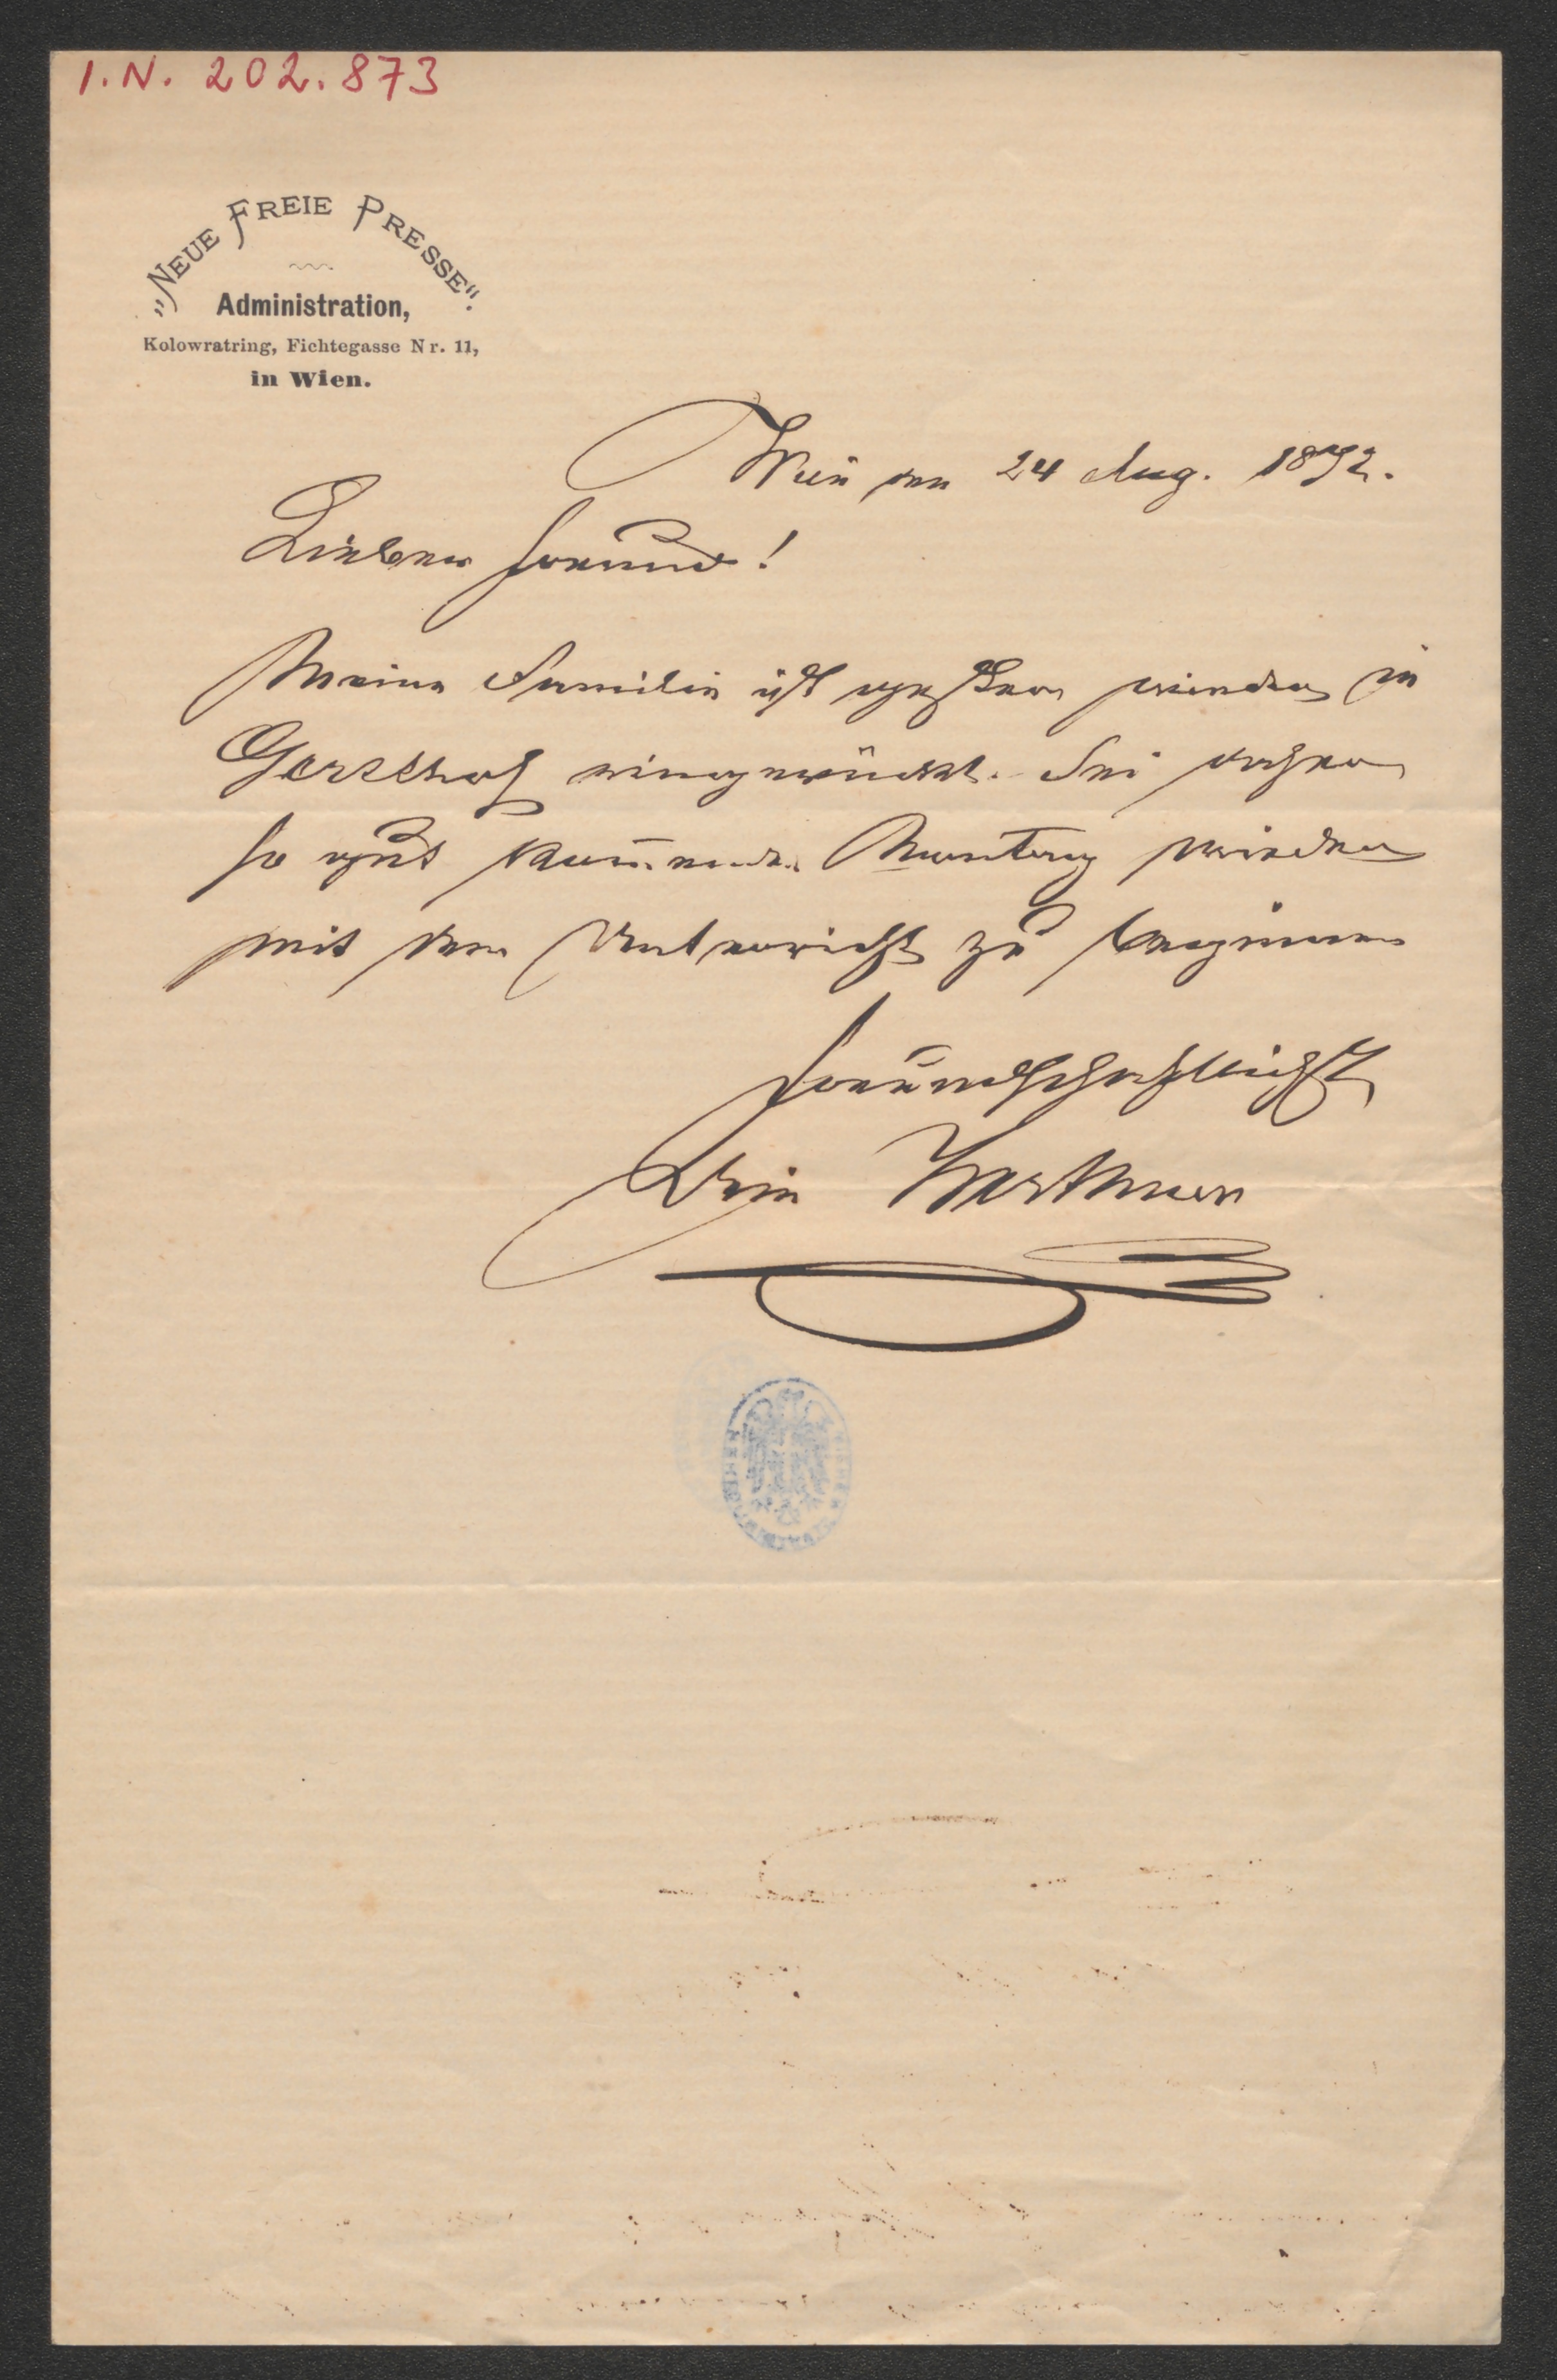 I.N. 202.873
„NEUE FREIE PRESSE“.
Administration,
Kolowratring, Fichtegasse Nr. 11,
in Wien.
Wien den 24 Aug. 1892.
Lieber Freund!
Meine Familie ist gestern wieder in
Gersthof eingerückt. Sei daher
so gut kommenden Montag wieder
mit dem Unterricht zu beginnen
freundschaftlichst
Dein